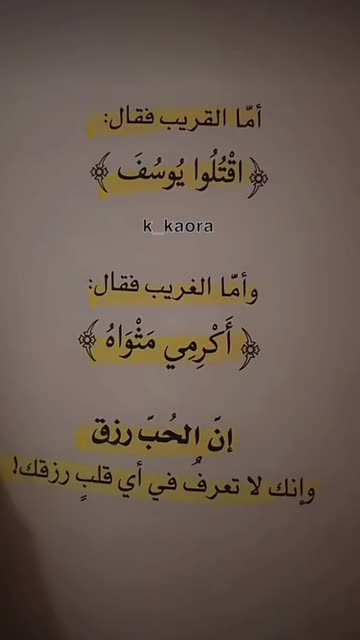 أمّا القريب فقال:
﴿اقْتُلُوا يُوسُفَ﴾
k_kaora
وأمّا الغريب فقال:
﴿أَكْرِمِي مَثْوَاهُ﴾
إنّ الحُبّ رزق
وإنك لا تعرفُ في أي قلبٍ رزقك!